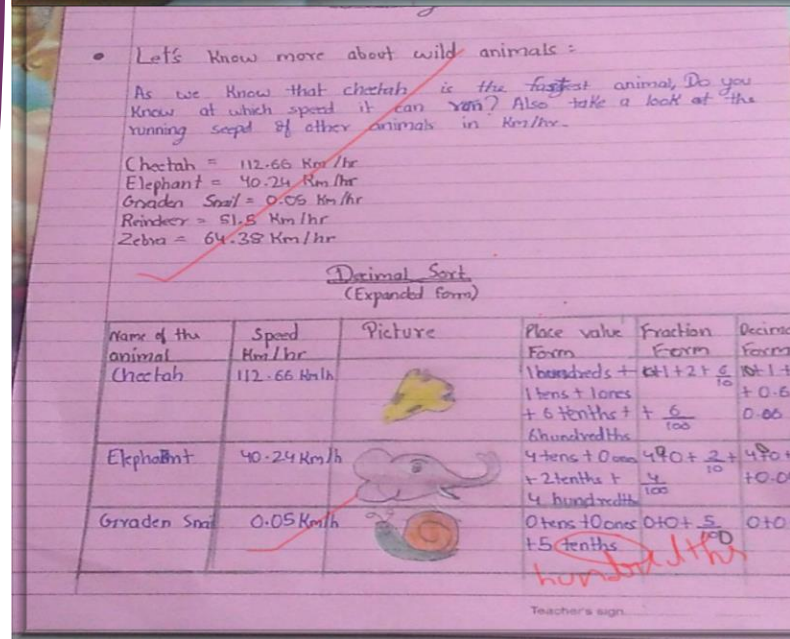 • Let's Know more about wild animals :
As we Know that cheetah is the fastest animal, Do you
Know at which speed it can run? Also take a look at the
running seepd of other animals in Km/hr.
Cheetah = 112.66 Km/hr
Elephant = 40.24 Km/hr
Graden Snail = 0.05 Km/hr
Reindeer = 51.5 Km/hr
Zebra = 64.38 Km/hr
Decimal Sort
(Expanded form)
Name of the animal
Speed Km/hr
Picture
Place value Form
Fraction Form
Decima Form
Cheetah
112.66 Km/h
1 hundreds +
1 tens + 1 ones
+ 6 tenths +
6 hundredths
+1+2+ 6/10
+ 6/100
+1+
+0.6
0.06
Elephant
40.24 Km/h
4 tens + 0 ones
+ 2 tenths +
4 hundredth
+0+ 2/10 +
4/100
+0.0
Graden Snail
0.05 Km/h
0 tens + 0 ones
+5 tenths
hundredths
0+0+ 5/100
0+0
Teacher's sign